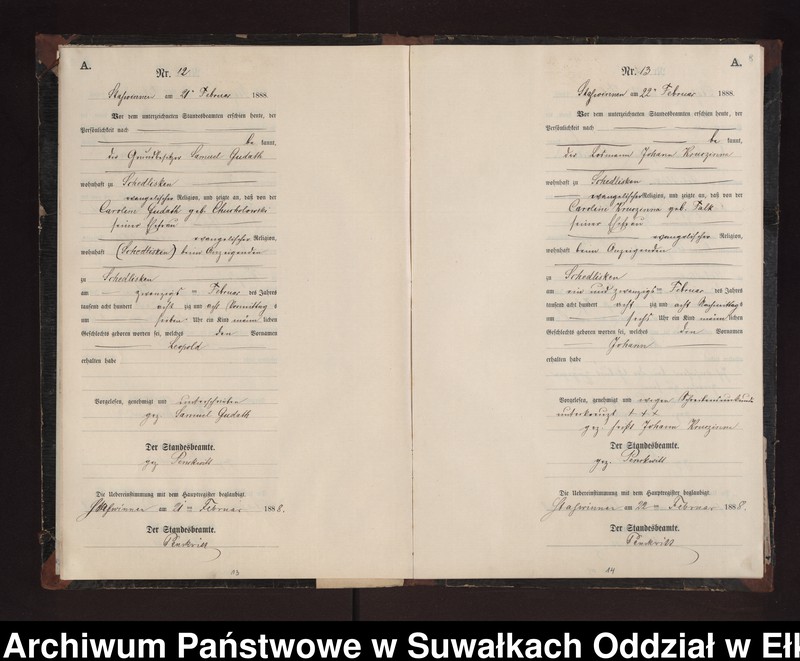 A.
Nr. 12
Stasswinnen am 21ten Februar 1888.
Vor dem unterzeichneten Standesbeamten erschien heute, der
Persönlichkeit nach
be kannt,
der Grundbesitzer Samuel Gudath
wohnhaft zu Schedlisken
evangelischer Religion, und zeigte an, daß von der
Caroline Gudath geb.
seiner Ehefrau
evangelischer Religion,
wohnhaft (Schedlisken) beim Anzeigenden
zu Schedlisken
am zwanzigsten Februar des Jahres
tausend acht hundert acht zig und acht Vormittags
um sieben Uhr ein Kind männlichen
Geschlechts geboren worden sei, welches den Vornamen
Leopold
erhalten habe
Vorgelesen, genehmigt und unterschrieben
gez. Samuel Gudath
Der Standesbeamte.
gez.
Die Uebereinstimmung mit dem Hauptregister beglaubigt.
Stasswinnen am 21ten Februar 1888.
Der Standesbeamte.
13
A.
Nr. 13
Stasswinnen am 22ten Februar 1888.
Vor dem unterzeichneten Standesbeamten erschien heute, der
Persönlichkeit nach
be kannt,
der Losmann Johann
wohnhaft zu Schedlisken
evangelischer Religion, und zeigte an, daß von der
Caroline geb. Falk
seiner Ehefrau
evangelischer Religion,
wohnhaft beim Anzeigenden
zu Schedlisken
am ein und zwanzigsten Februar des Jahres
tausend acht hundert acht zig und acht Nachmittags
um sechs Uhr ein Kind männlichen
Geschlechts geboren worden sei, welches den Vornamen
Johann
erhalten habe
Vorgelesen, genehmigt und wegen Schreibensunkunde
unterkreuzt + + +
gez. Johann
Der Standesbeamte.
gez.
Die Uebereinstimmung mit dem Hauptregister beglaubigt.
Stasswinnen am 22ten Februar 1888.
Der Standesbeamte.
14
Archiwum Państwowe w Suwałkach Oddział w Eł